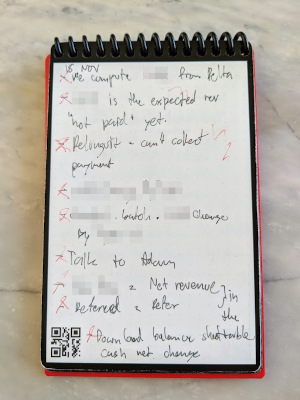 15 NOV
Re compute from Delta
is the expected rev
"not paid" yet.
Relinquit - can't collect
payment
batch. change
By
Talk to Adam
= Net revenue
Deferred = Defer
} in the
Download balance sheet
cash net change